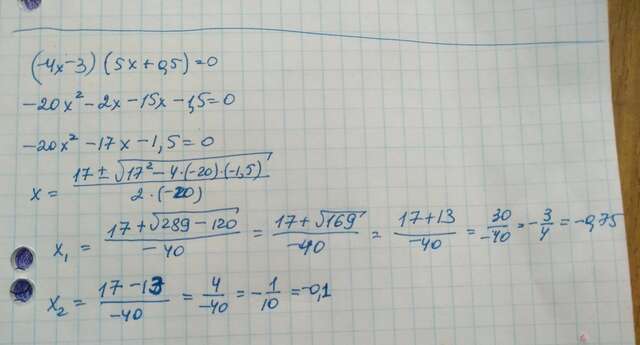 (-4x-3)(5x+0,5)=0
-20x²-2x-15x-1,5=0
-20x²-17x-1,5=0
x = \frac{17±√(17²-4·(-20)·(-1,5))}{2·(-20)}
x₁ = \frac{17+√(289-120)}{-40} = \frac{17+√169}{-40} = \frac{17+13}{-40} = \frac{30}{-40} = -\frac{3}{4} = -0,75
x₂ = \frac{17-13}{-40} = \frac{4}{-40} = -\frac{1}{10} = -0,1